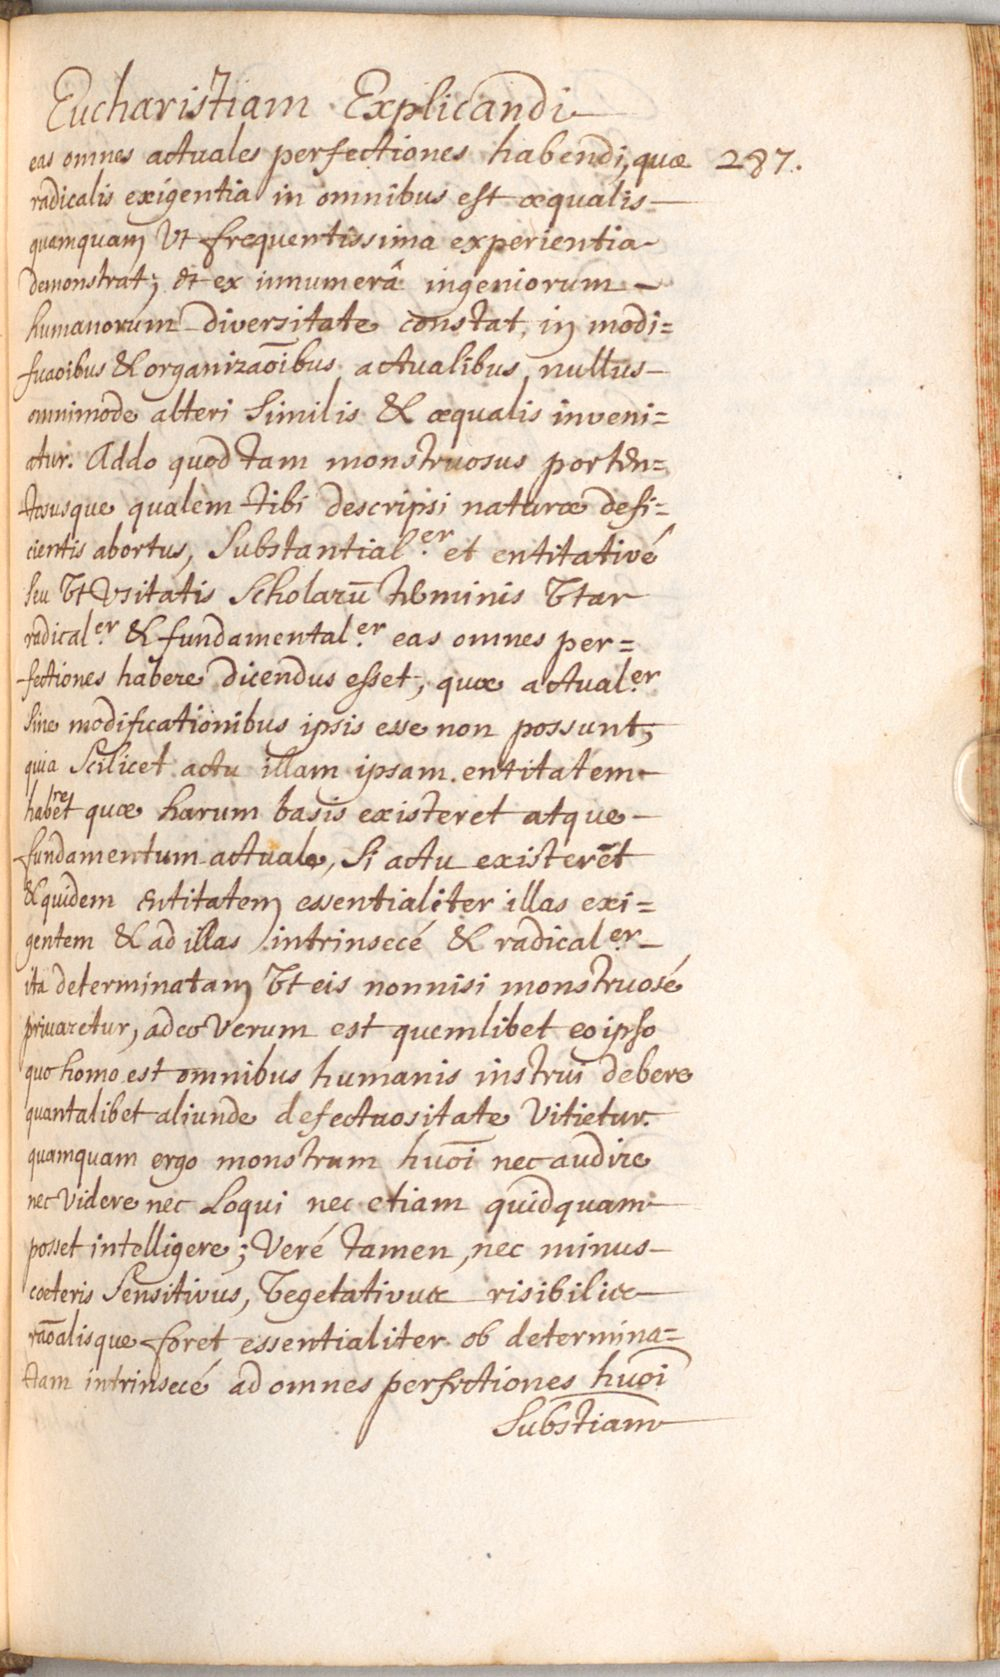 Eucharistiam Explicandi
eas omnes actuales perfectiones habendi, quæ 287.
radicalis exigentia in omnibus est æqualis
quamquam Vt frequentissima experientia
demonstrat; et ex innumerâ ingeniorum
humanorum diversitate constat, in modi=
 & organizaõibus actualibus nullus
omnimode alteri Similis & æqualis inveni=
atur. Addo quod tam monstruosus porten=
tosusque qualem tibi descripsi naturæ defi=
cientis abortus, Substantialer et entitativé
Seu Vt Vsitatis Scholarū terminis Vtar
radicaler & fundamentaler eas omnes per=
fectiones habere dicendus esset, quæ actualer
Sine modificationibus ipsis esse non possunt;
quia Scilicet actu illam ipsam entitatem
habret quæ harum basis existeret atque
fundamentum actuale, Si actu existerēt
& quidem entitatem essentialiter illas exi=
gentem & ad illas intrinsecé & radicaler
ita determinatam Vt eis nonnisi monstruosé
privaretur, adeo Verum est quemlibet eo ipso
quo homo est omnibus humanis instrui debere
quantalibet aliunde defectuositate Vitietur.
quamquam ergo monstrum huōi nec audire
nec Videre nec Loqui nec etiam quidquam
posset intelligere; Veré tamen, nec minus
cœteris Sensitivus, Vegetativus risibilis
raōalisque foret essentialiter ob determina=
tam intrinsecé ad omnes perfectiones huōi
Substiam